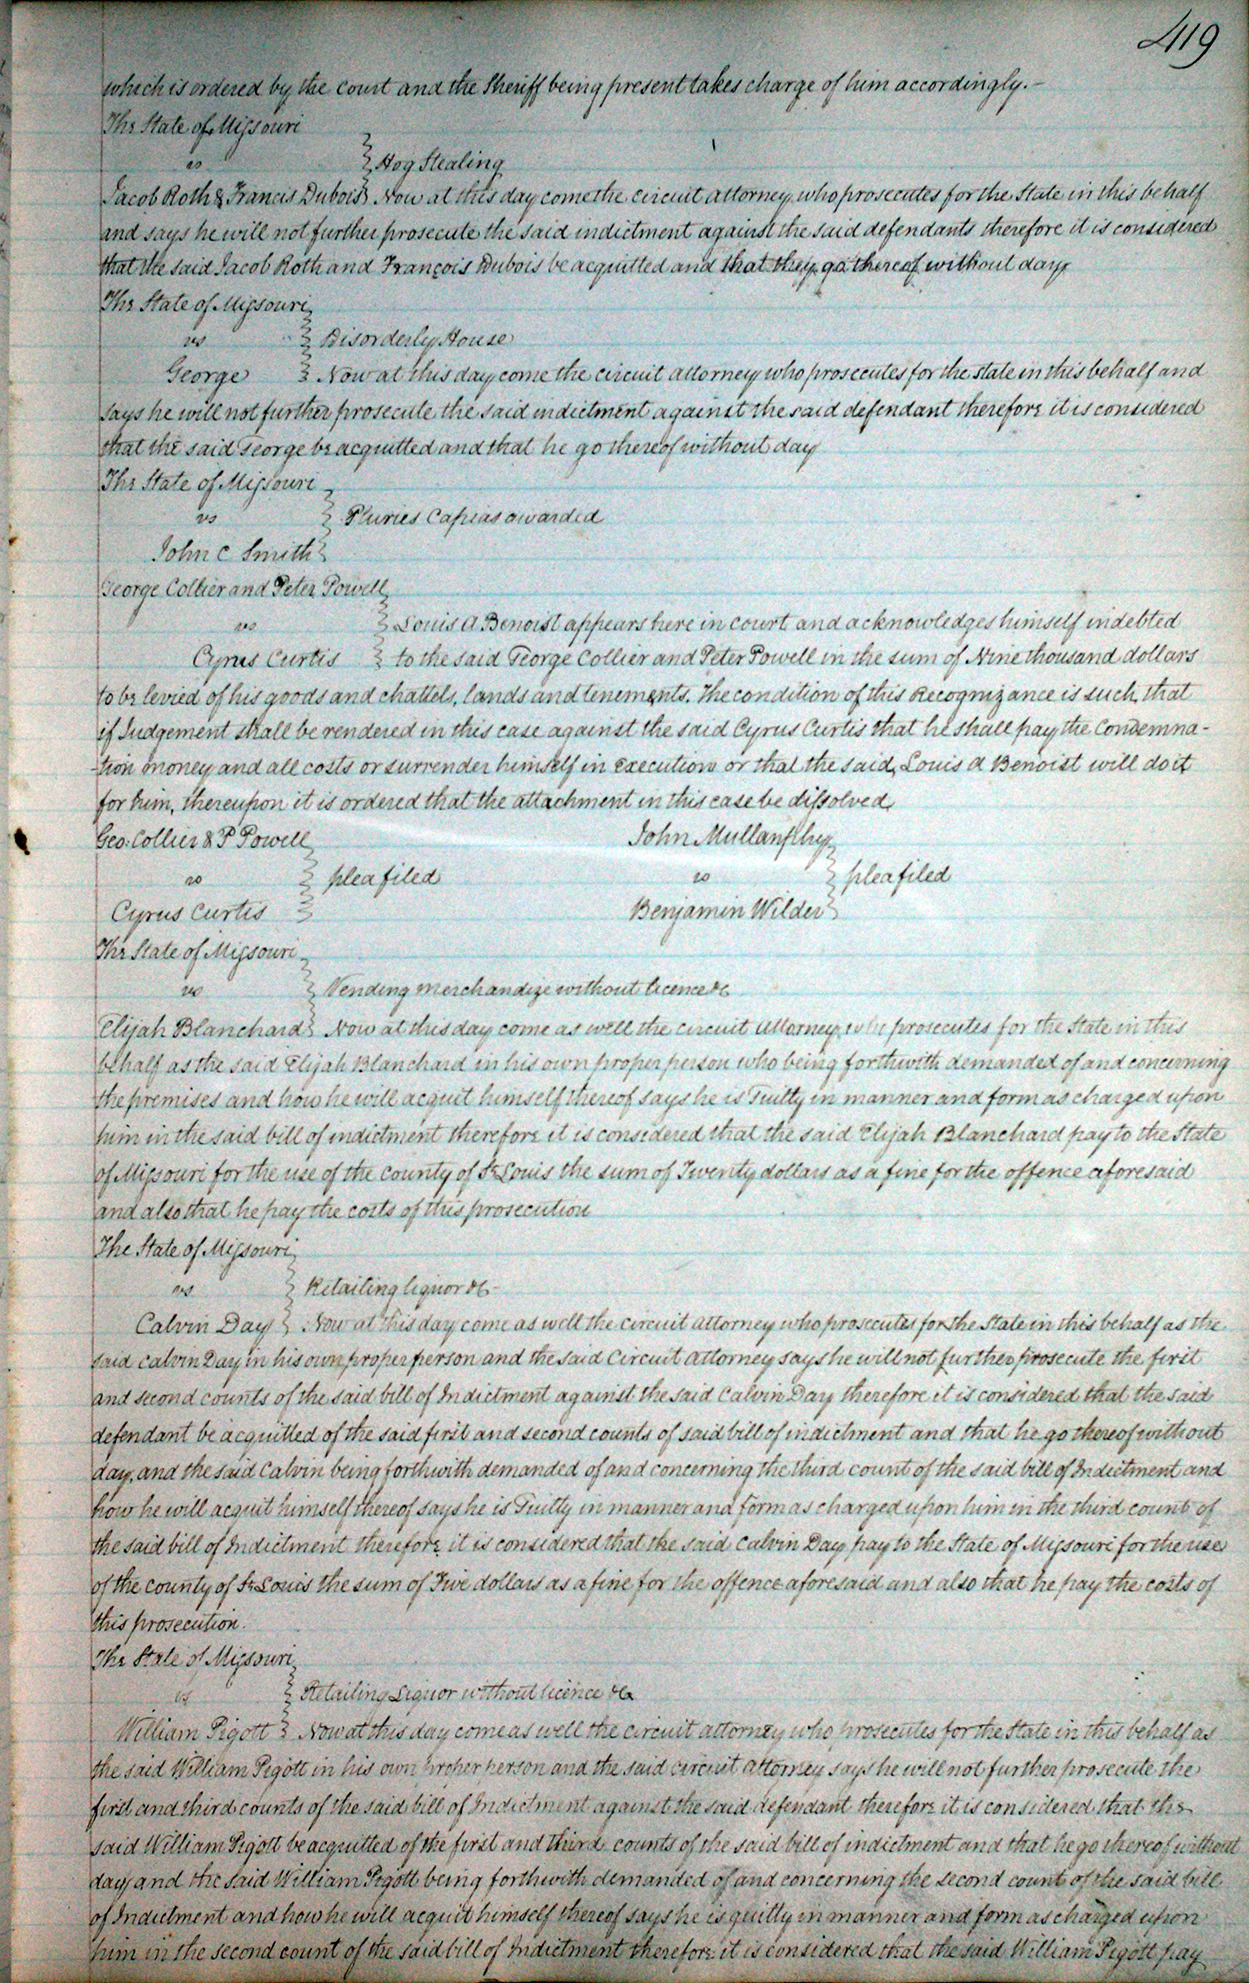 419
which is ordered by the court and the Sheriff being present takes charge of him accordingly.—
The State of Missouri
vs
Hog Stealing
Jacob Roth & Francis Dubois Now at this day come the circuit attorney who prosecutes for the State in this behalf
and says he will not further prosecute the said indictment against the said defendants therefore it is considered
that the said Jacob Roth and François Dubois be acquitted and that they go thereof without day
The State of Missouri
vs
Disorderly House
George Now at this day come the circuit attorney who prosecutes for the state in this behalf and
says he will not further prosecute the said indictment against the said defendant therefore it is considered
that the said George be acquitted and that he go thereof without day
The State of Missouri
vs
Pluries Capias awarded
John C Smith
George Collier and Peter Powell
vs
Louis A Benoist appears here in court and acknowledges himself indebted
Cyrus Curtis to the said George Collier and Peter Powell in the sum of Nine thousand dollars
to be levied of his goods and chattels, lands and tenements. The condition of this Recognizance is such, that
if Judgement shall be rendered in this case against the said Cyrus Curtis that he shall pay the Condemna-
-tion money and all costs or surrender himself in execution or that the said Louis A Benoist will do it
for him, thereupon it is ordered that the attachment in this case be dissolved.
Geo: Collier & P Powell
vs
plea filed
Cyrus Curtis
John Mullanphy
vs
plea filed
Benjamin Wilder
The State of Missouri
vs
Vending merchandize without licence &c
Elijah Blanchard Now at this day come as well the circuit attorney who prosecutes for the State in this
behalf as the said Elijah Blanchard in his own proper person who being forthwith demanded of and concerning
the premises and how he will acquit himself thereof says he is Guilty in manner and form as charged upon
him in the said bill of indictment therefore it is considered that the said Elijah Blanchard pay to the State
of Missouri for the use of the county of St Louis the sum of Twenty dollars as a fine for the offence aforesaid
and also that he pay the costs of this prosecution
The State of Missouri
vs
Retailing liquor &c-
Calvin Day Now at this day come as well the circuit attorney who prosecutes for the State in this behalf as the
said Calvin Day in his own proper person and the said Circuit attorney says he will not further prosecute the first
and second counts of the said bill of Indictment against the said Calvin Day therefore it is considered that the said
defendant be acquitted of the said first and second counts of said bill of indictment and that he go thereof without
day, and the said Calvin being forthwith demanded of and concerning the third count of the said bill of Indictment and
how he will acquit himself thereof says he is Guilty in manner and form as charged upon him in the third count of
the said bill of Indictment therefore it is considered that the said Calvin Day pay to the State of Missouri for the use
of the county of St Louis the sum of Five dollars as a fine for the offence aforesaid and also that he pay the costs of
this prosecution.
The State of Missouri
vs
Retailing Liquor without licence &c
William Pigott Now at this day come as well the circuit attorney who prosecutes for the State in this behalf as
the said William Pigott in his own proper person and the said circuit attorney says he will not further prosecute the
first and third counts of the said bill of Indictment against the said defendant therefore it is considered that the
said William Pigott be acquitted of the first and third counts of the said bill of indictment and that he go thereof without
day and the said William Pigott being forthwith demanded of and concerning the second count of the said bill
of Indictment and how he will acquit himself thereof says he is guilty in manner and form as charged upon
him in the second count of the said bill of Indictment therefore it is considered that the said William Pigott pay